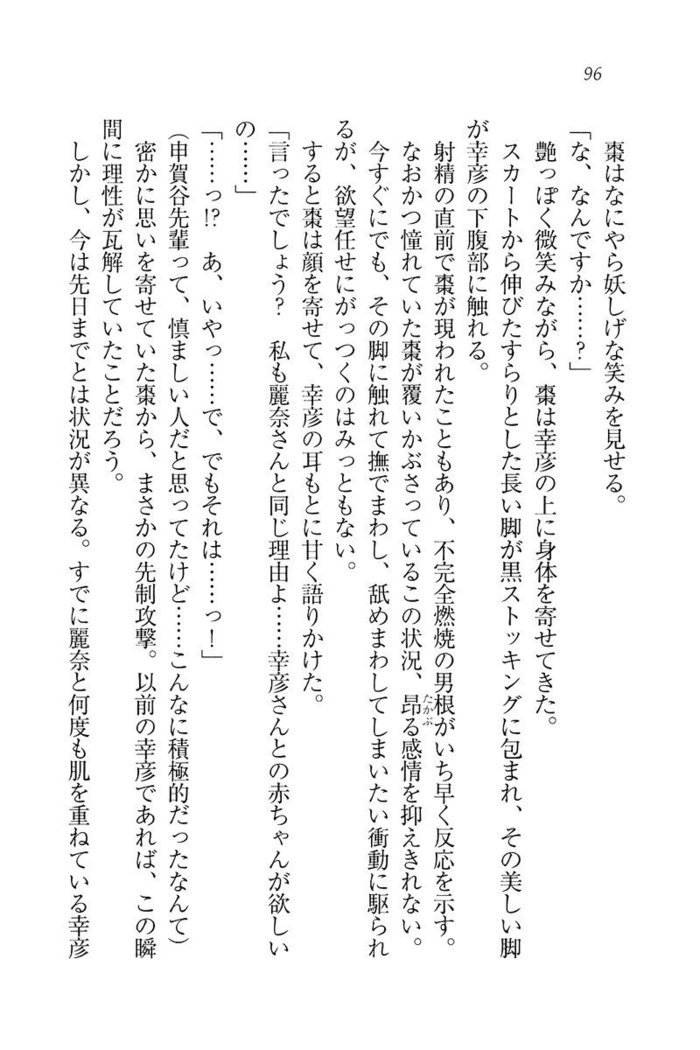 96
棗はなにやら妖しげな笑みを見せる。
「な、なんですか……？」
艶っぽく微笑みながら、棗は幸彦の上に身体を寄せてきた。
スカートから伸びたすらりとした長い脚が黒ストッキングに包まれ、その美しい脚
が幸彦の下腹部に触れる。
射精の直前で棗が現われたこともあり、不完全燃焼の男根がいち早く反応を示す。
なおかつ憧れていた棗が覆いかぶさっているこの状況、昂る感情を抑えきれない。
たかぶ
今すぐにでも、その脚に触れて撫でまわし、舐めまわしてしまいたい衝動に駆られ
るが、欲望任せにがっつくのはみっともない。
すると棗は顔を寄せて、幸彦の耳もとに甘く語りかけた。
「言ったでしょう？　私も麗奈さんと同じ理由よ……幸彦さんとの赤ちゃんが欲しい
の……」
「……っ!?　あ、いやっ……で、でもそれは……っ！」
（申賀谷先輩って、慎ましい人だと思ってたけど……こんなに積極的だったなんて）
密かに思いを寄せていた棗から、まさかの先制攻撃。以前の幸彦であれば、この瞬
間に理性が瓦解していたことだろう。
しかし、今は先日までとは状況が異なる。すでに麗奈と何度も肌を重ねている幸彦